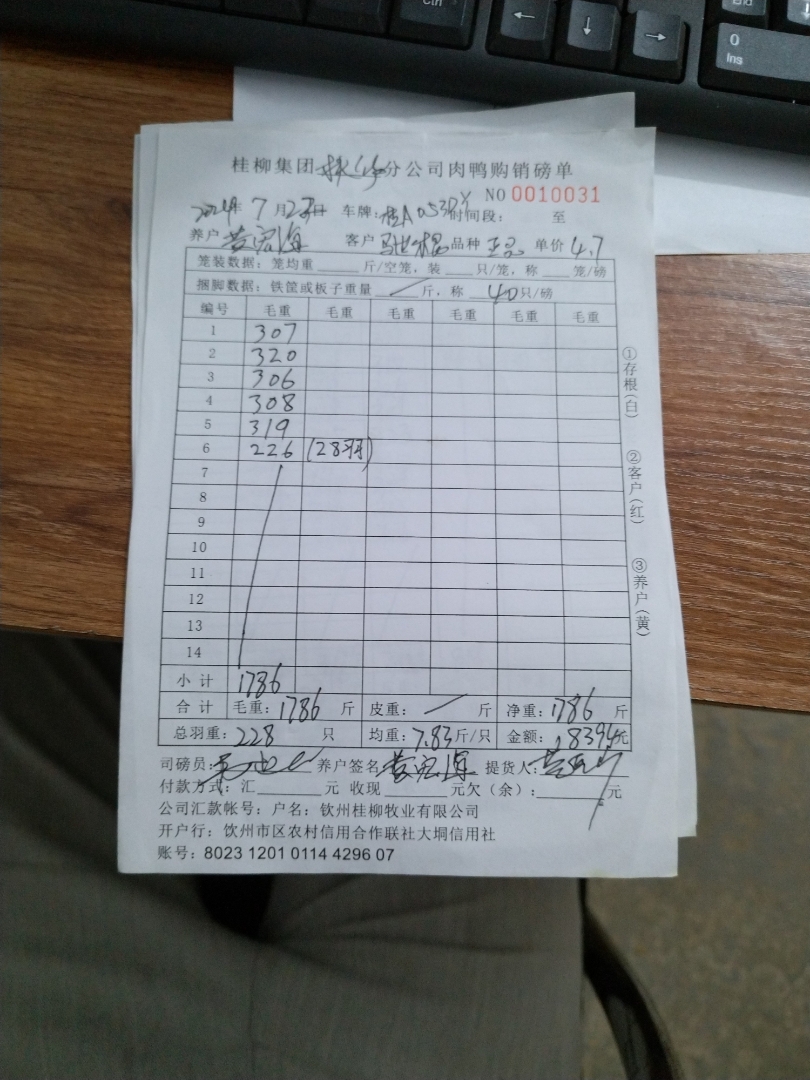 Ctrl
←
↓
→
End
0
Ins
桂柳集团 分公司肉鸭购销磅单
NO 0010031
2024年 7月 日 车牌:桂A 时间段: 至
养户 黄宏海 客户 品种 正品 单价 4.7
笼装数据:笼均重 斤/空笼,装 只/笼,称 笼/磅
捆脚数据:铁筐或板子重量 / 斤,称 40 只/磅
编号 毛重 毛重 毛重 毛重 毛重 毛重
1 307
2 320
3 306
4 308
5 319
6 226 (28羽)
7
8
9
10
11
12
13
14
小计 1786
合计 毛重:1786 斤 皮重: / 斤 净重:1786 斤
总羽重:228 只 均重:7.83斤/只 金额:8394元
司磅员: 养户签名 黄宏海 提货人:
付款方式:汇 元 收现 元欠(余): 元
公司汇款帐号:户名:钦州桂柳牧业有限公司
开户行:饮州市区农村信用合作联社大垌信用社
账号:8023 1201 0114 4296 07
①存根(白)
②客户(红)
③养户(黄)